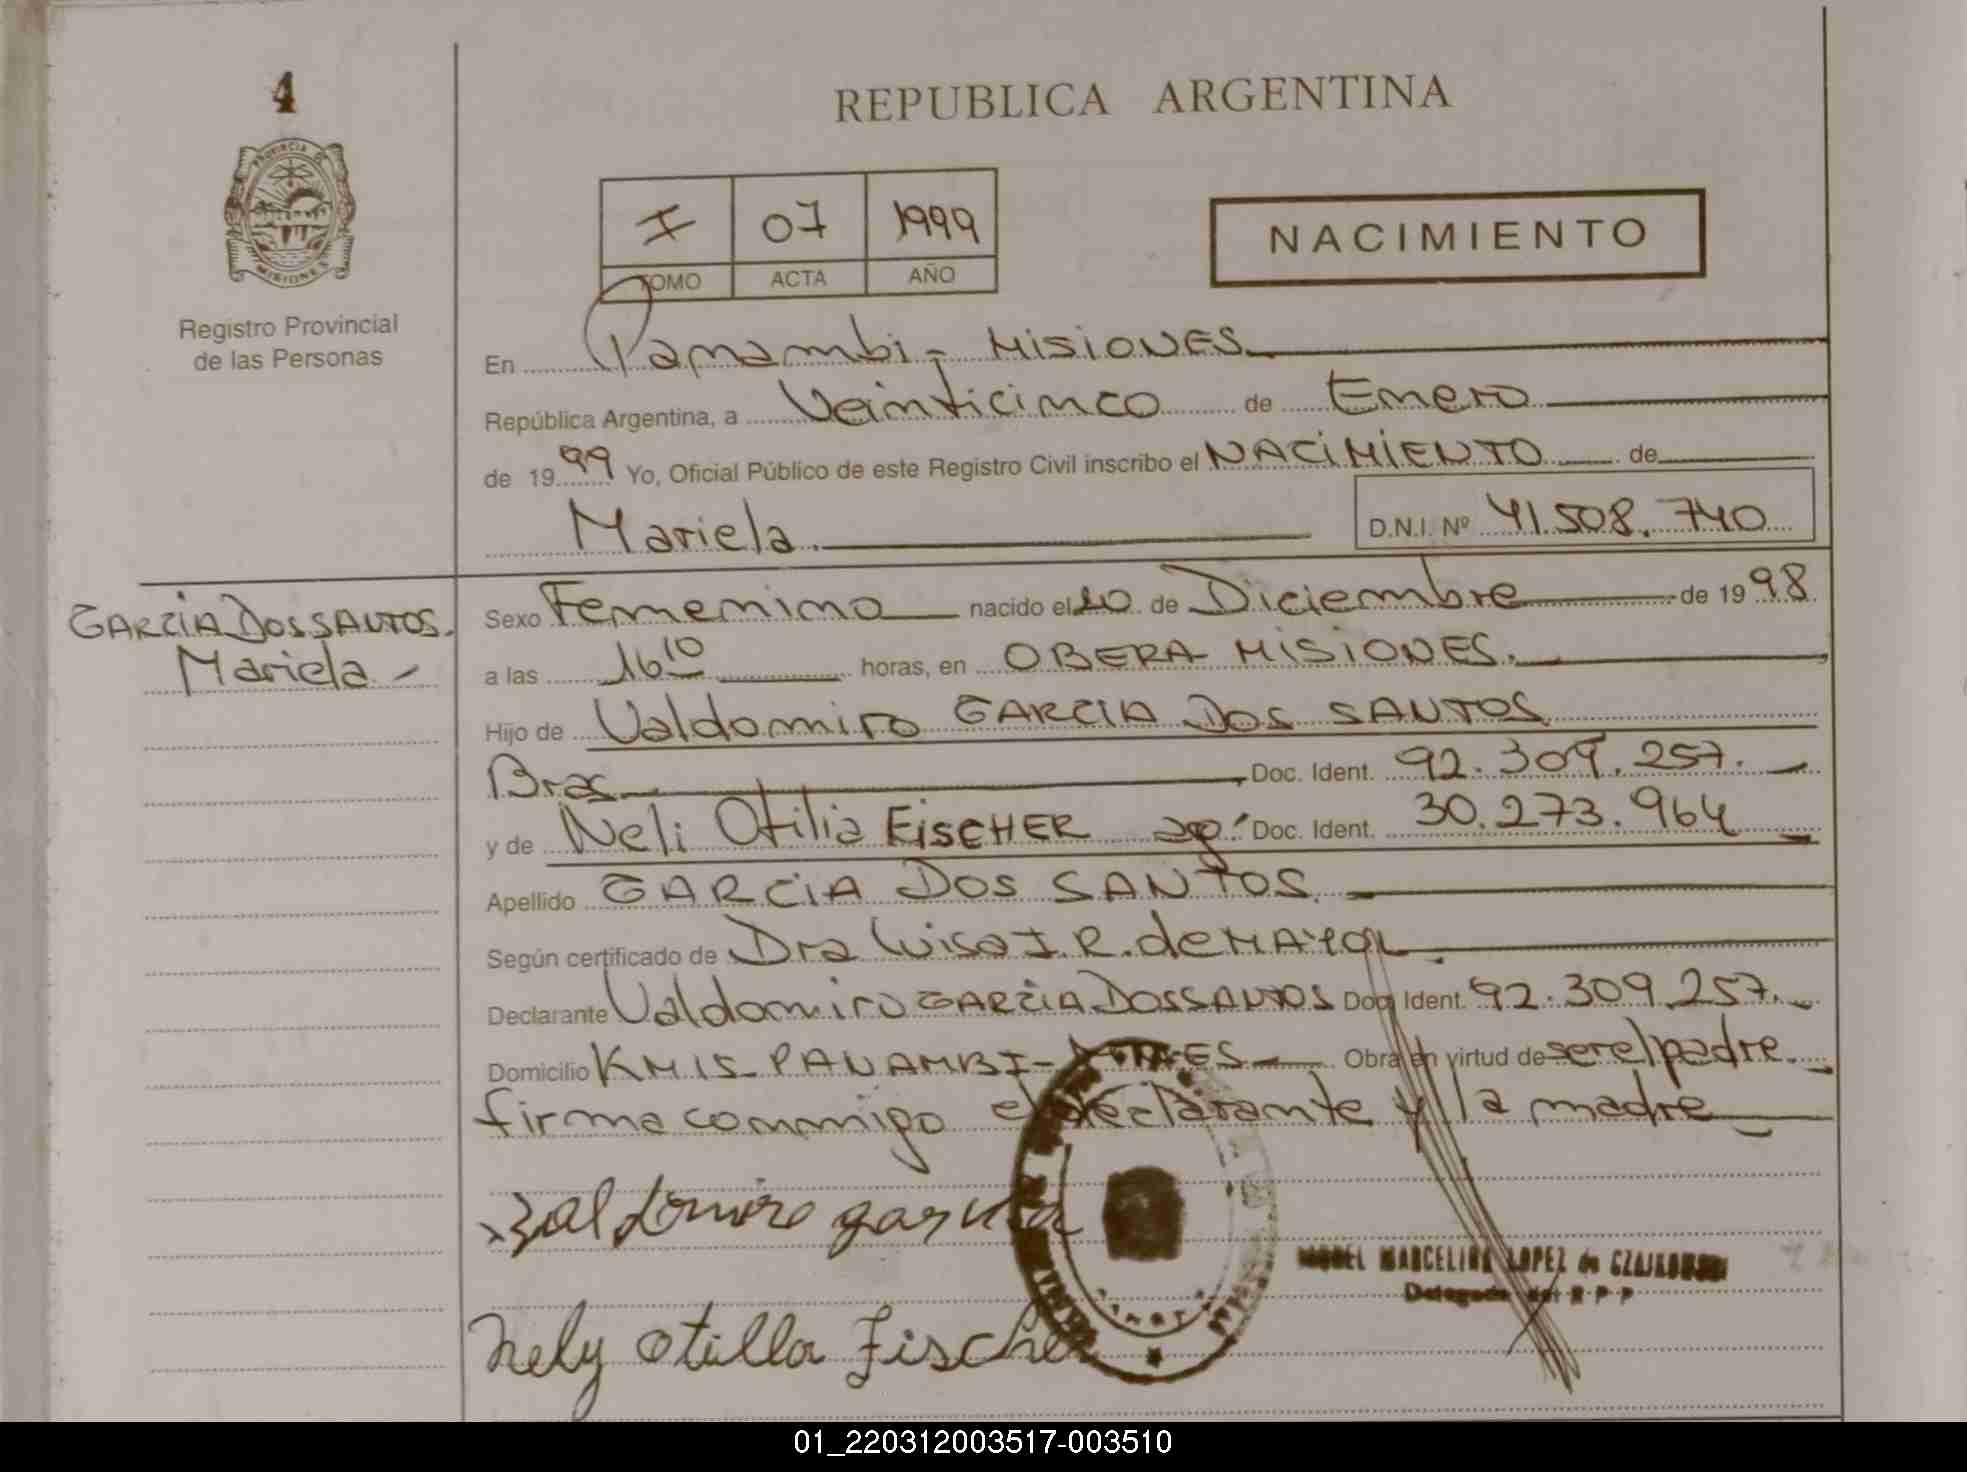 4
PROVINCIA DE
MISIONES
Registro Provincial
de las Personas
REPUBLICA ARGENTINA
I 07 1999
TOMO ACTA AÑO
NACIMIENTO
En Panambi - MISIONES
República Argentina, a Veinticinco de Enero
de 1999 Yo, Oficial Público de este Registro Civil inscribo el NACIMIENTO de
Mariela. D.N.I. Nº 41.508.740
GARCIA DOS SANTOS.
Mariela -
Sexo Femenino nacido el 20 de Diciembre de 1998
a las 16 10 horas, en OBERA MISIONES.
Hijo de Valdomiro GARCIA DOS SANTOS
Bras. Doc. Ident. 92.309.257.
y de Neli Otilia FISCHER arg. Doc. Ident. 30.273.964
Apellido GARCIA DOS SANTOS.
Según certificado de Dra Luisa I. R. de MAYOL
Declarante Valdomiro GARCIA DOS SANTOS Doc. Ident. 92.309.257.
Domicilio KM 15 - PANAMBI - Obra en virtud de ser el padre.
firma conmigo el declarante y la madre
Baldomiro garcia
Nely otilla Fischer
MARCELINA LOPEZ de CZAJKOWSKI
Delegada del R P P
01_220312003517-003510